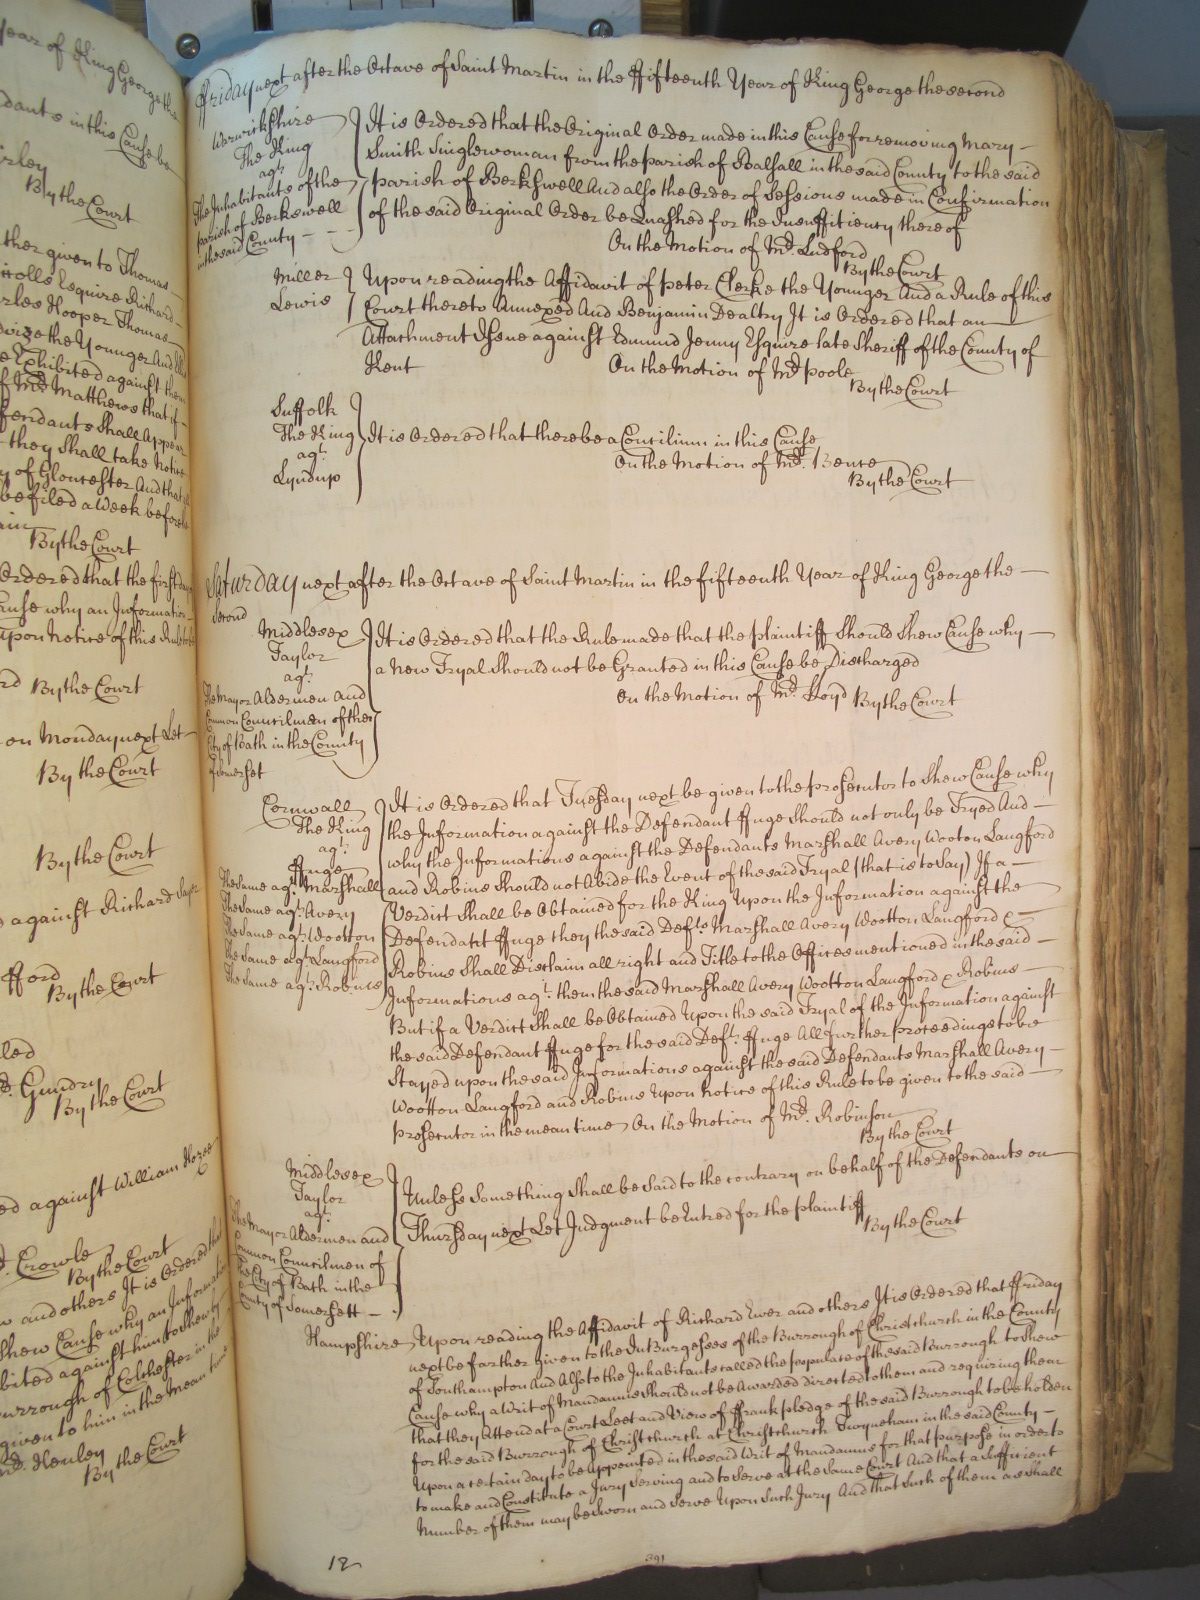 year of King George the
dants in this Cause be
By the Court
ther given to Thomas
Esquire Richard
rles Hooper Thomas
the Younger And
Exhibited against them
f Mr. Matthews that if
fendants Shall Appear
they Shall take Notice
y of Gloucester And that
be filed a Week before
By the Court
Ordered that the first day
Cause why an Information
upon Notice of this Rule
By the Court
on Monday next Let
By the Court
By the Court
against Richard
fford
By the Court
Gundry
By the Court
ed against William
Crowle
By the Court
and others It is Ordered that
Shew Cause why an Information
bited against him to Shew by
urrough of Colchester in the
given to him in the Mean time
Mr. Henley
By the Court
Fryday next after the Octave of Saint Martin in the ffifteenth Year of King George the second
Warwickshire
The King
agt.
The Inhabitants of the
parish of Berkswell
in the said County
It is Ordered that the Original Order made in this Cause for removing Mary
Smith Singlewoman from the parish of Balsall in the said County to the said
parish of Berkswell And also the Order of Sessions made in Confirmation
of the said Original Order be Quashed for the Insufficiency thereof
On the Motion of Mr. Ludford
By the Court
Miller
Lewis
Upon reading the Affidavit of peter Clerke the Younger And a Rule of this
Court thereto Annexed And Benjamin Dealtry It is Ordered that an
Attachment Issue against Edmund Jenny Esquire late Sheriff of the County of
Kent On the Motion of Mr. poole
By the Court
Suffolk
The King
agt.
Lyndup
It is Ordered that there be a Concilium in this Cause
On the Motion of Mr. Bence
By the Court
Saturday next after the Octave of Saint Martin in the fifteenth Year of King George the
Second
Middlesex
Taylor
agt.
The Mayor Aldermen and
Common Councilmen of the
City of Bath in the County
of Somerset
It is Ordered that the Rule made that the plaintiff Should Shew Cause why
a New Tryal Should not be Granted in this Cause be Discharged
On the Motion of Mr. Lloyd By the Court
Cornwall
The King
agt.
ffuge
The Same agt. Marshall
The Same agt. Avery
The Same agt. Wootton
The Same agt. Langford
The Same agt. Robins
It is Ordered that Tuesday next be given to the prosecutor to Shew Cause why
the Information against the Defendant ffuge Should not only be Tryed And
why the Informations against the Defendants Marshall Avery Wooton Langford
and Robins Should not Abide the Event of the said Tryal (that is to Say) If a
Verdict Shall be Obtained for the King Upon the Information against the
Defendant ffuge they the said Defts. Marshall Avery Wootton Langford &
Robins Shall Disclaim all right and Title to the Offices mentioned in the said
Informations agt. them the said Marshall Avery Wootton Langford & Robins
But if a Verdict Shall be Obtained Upon the said Tryal of the Information against
the said Defendant ffuge for the said Deft. ffuge All further proceedings to be
Stayed upon the said Informations against the said Defendants Marshall Avery
Wootton Langford and Robins Upon notice of this Rule to be given to the said
prosecutor in the mean time On the Motion of Mr. Robinson
By the Court
Middlesex
Taylor
agt.
The Mayor Aldermen and
Common Councilmen of
the City of Bath in the
County of Somersett
Unless Something Shall be Said to the contrary on behalf of the Defendants on
Thursday next Let Judgment be Entred for the plaintiff
By the Court
Hampshire Upon reading the Affidavit of Richard Ewer and others It is Ordered that ffriday
next be farther given to the InBurgesses of the Burrough of Christchurch in the County
of Southampton And Also to the Inhabitants called the populace of the said Burrough to Shew
Cause why a Writ of Mandamus Should not be Awarded directed to them and requiring them
that they Attend at a Court Leet and View of ffrankpledge of the said Burrough to be holden
for the said Burrough of Christchurch at Christchurch Twyneham in the said County
Upon a certain day to be Appointed in the said Writ of Mandamus for that purpose in order to
to make and Constitute a Jury Serving and to Serve at the Same Court And that a Sufficient
Number of them may be Sworn and Serve Upon Such Jury And that Such of them as Shall
12
391